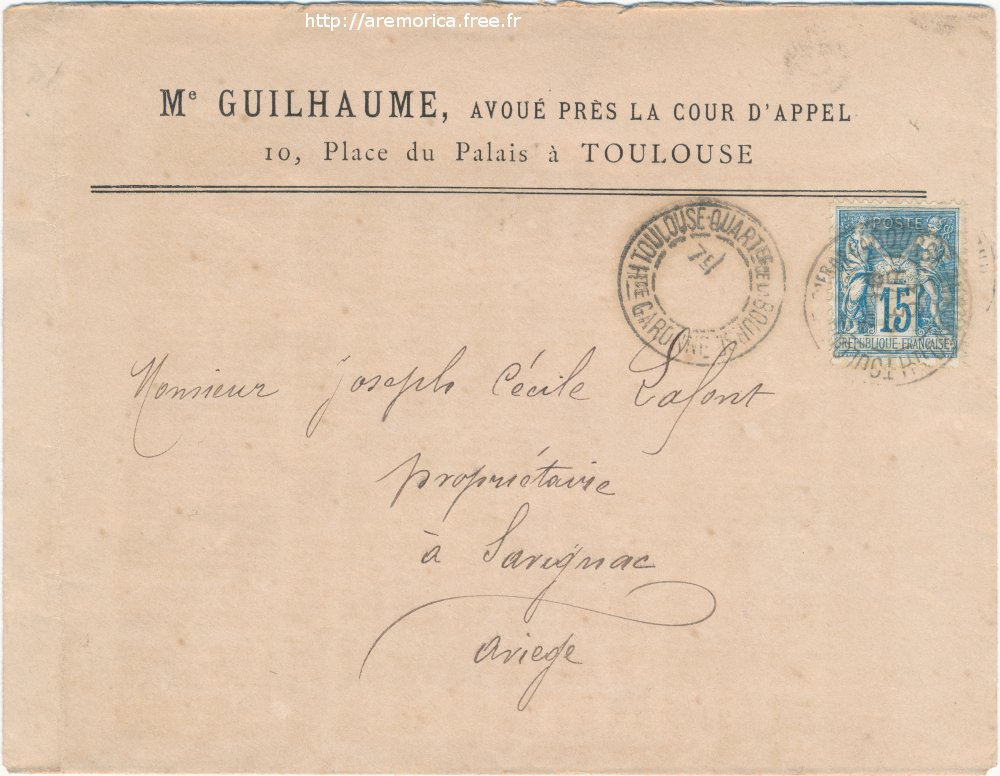 http://aremorica.free.fr
Me GUILHAUME, AVOUÉ PRÈS LA COUR D'APPEL
10, Place du Palais à TOULOUSE
TOULOUSE-QUARTIER DE LA BOURSE
Hte GARONNE
POSTE
15
REPUBLIQUE FRANÇAISE
Monsieur Joseph Cécile Lafont
propriétaire
à Savignac
Ariege